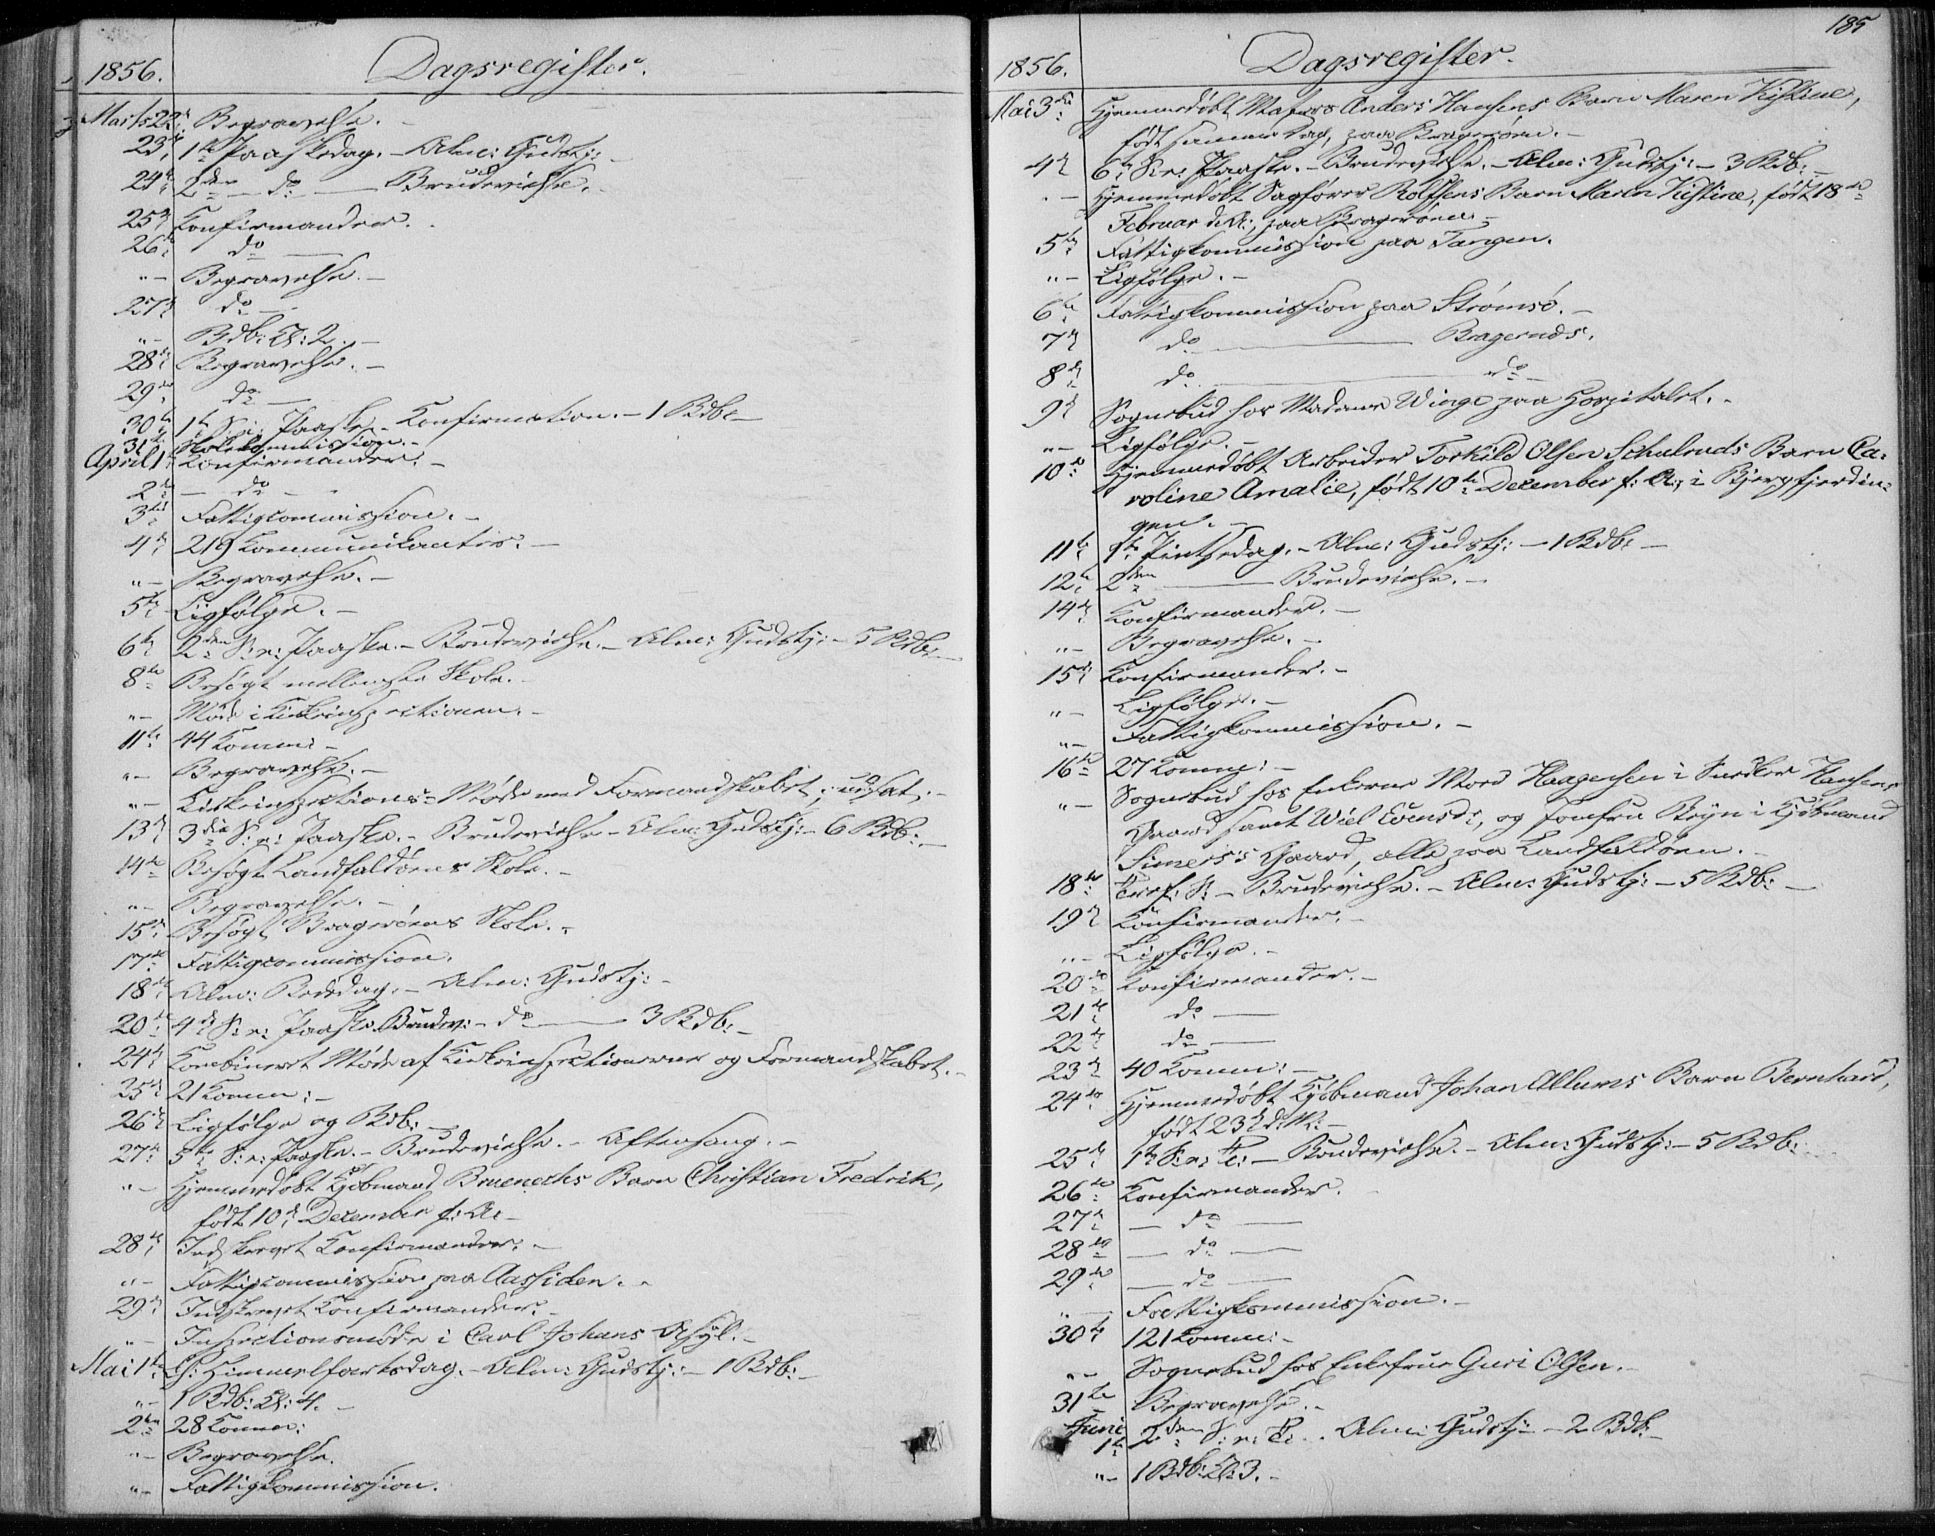 1856. Dagsregister.
Marts 22de Begravelse. -
23de 1ste Paaskedag. - Alm: Gudstj: -
24de 2den - do - Brudevielse. -
25de Konfirmander. -
26de do -
" - Begravelse. -
27de do -
" - Bdb: Kl: 2. -
28de Begravelse. -
29de do -
30te 1ste S: e: Paaske. - Konfirmation. - 1 Bdb: -
31te Skolekommission. -
April 1ste Konfirmander. -
2den - do -
3die Fattigcommission. -
4de 219 Kommunikanter. -
" - Begravelse. -
5te Ligfølge. -
6te 2den S: e: Paaske. - Brudevielse. - Alm: Gudstj: - 5 Bdb: -
8de Besøgt mellemste Skole. -
" - Møde i Kirkeinspectionen. -
11te 44 Komm: -
" - Begravelse. -
" - Kirkeinspections-Møde med Formandskabet; udsat. -
13de 3die S: e: Paaske. - Brudevielse - Alm: Gudstj: - 6 Bdb: -
14de Besøgt Landfaldøens Skole. -
" - Begravelse. -
15de Besøgt Bragerøens Skole. -
17de Fattigcommission.
18de Alm: Bededag. - Alm: Gudstj: -
20de 4de S: e: Paaske. Brudev: - do - 3 Bdb: -
24de Kombineret Møde af Kirkeinspectionerne og Formandskabet. -
25de 21 Komm: -
26de Ligfølge og Bdb: -
27de 5te S: e: Paaske. - Brudevielse. - Aftensang. -
" - Hjemmedøbt Kjøbmand Bruenechs Barn Christian Fredrik,
født 10de December f: A: -
28de Indskrevet Konfirmander. -
" - Fattigcommission paa Aassiden. -
29de Indskrevet Konfirmander. -
" - Inspectionsmøde i Carl Johans Asyl. -
Mai 1ste Chr: Himmelfartsdag. - Alm: Gudstj: - 1 Bdb: -
" - 1 Bdb: Kl: 4. -
2den 28 Komm:
" - Begravelse.
" - Fattigkommission.
185
1856. Dagsregister.
Mai 3die Hjemmedøbt Matros Anders Hansens Barn Maren Kistine,
født samme Dag, paa Bragerøen. -
4de 6te S: e: Paaske. - Brudevielse. - Alm: Gudstj: - 3 Bdb: -
" - Hjemmedøbt Sagfører Rolfsens Barn Maren Kistine, født 18de
Februar d: A:, paa Bragerøen. -
5te Fattigkommission paa Tangen.
" - Ligfølge. -
6te Fattigkommission paa Strømsø. -
7de do - Bragernæs.
8de do - do -
9de Sognebud hos Madame Winge paa Hospitalet. -
" - Ligfølge. -
10de Hjemmedøbt Arbeider Torkild Olsen Schulruds Barn Ca-
roline Amalie, født 10de December f: A:, i Bjergfjerdin-
gen. -
11te 1ste Pintsedag. - Alm: Gudstj: - 1 Bdb: -
12te 2den - Brudevielse. -
14de Konfirmander. -
" - Begravelse. -
15de Konfirmander. -
" - Ligfølge. -
" - Fattigkommission. -
16de 27 Komm: -
" - Sognebud hos Enkerne Moes Haagensen i Snedker Hansens
Gaard samt Wiel Evensd:, og Jomfru Bryn i Kjøbmand
Simers's Gaard, alle paa Landfaldøen. -
18de Tref: S: - Brudevielse. - Alm: Gudstj: - 5 Bdb: -
19de Konfirmander. -
" - Ligfølge. -
20de Konfirmander. -
21de do -
22de do -
23de 40 Komm: -
24de Hjemmedøbt Kjøbmand Johan Allums Barn Bernhard,
født 23de d: M: -
25de 1ste S: e: Tr: - Brudevielse. - Alm: Gudstj: - 5 Bdb:
26de Konfirmander.
27de - do -
28de - do -
29de - do -
" - Fattigkommission. -
30te 121 Komm: -
" - Sognebud hos Enkefrue Guri Olsen. -
31te Begravelse. -
Juni
1ste 2den S: e: Tr: - Alm: Gudstj: - 2 Bdb: -
" - 1 Bdb: Kl: 3. -